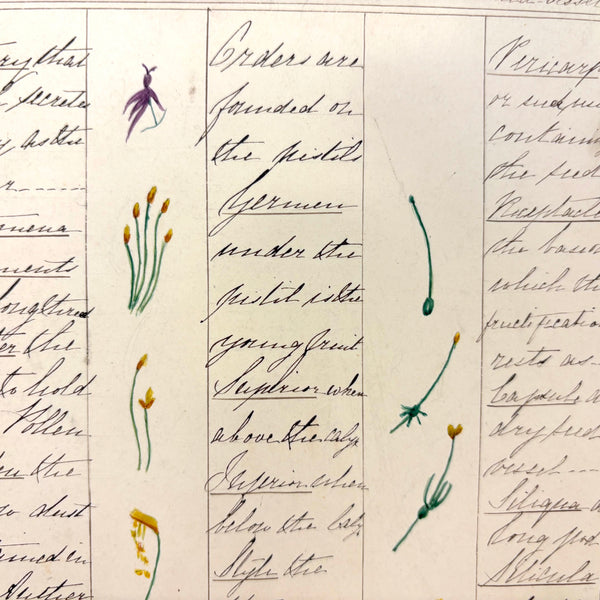 ry that
secrete
as the
r-------
mena
ments
long thread
ter the
to hold
Pollen
the
dust
tained in
Anther
Orders are
founded on
the pistils
Germen
under the
pistil is the
young fruit
Superior when
above the calyx
Inferior when
below the Caly
Style the
Pericarp
or
contain
the seed
Receptacle
the base
which the
fructification
rests as-
Capsule a
dry seed
vessel----
Siliqua a
long pod
Silicula